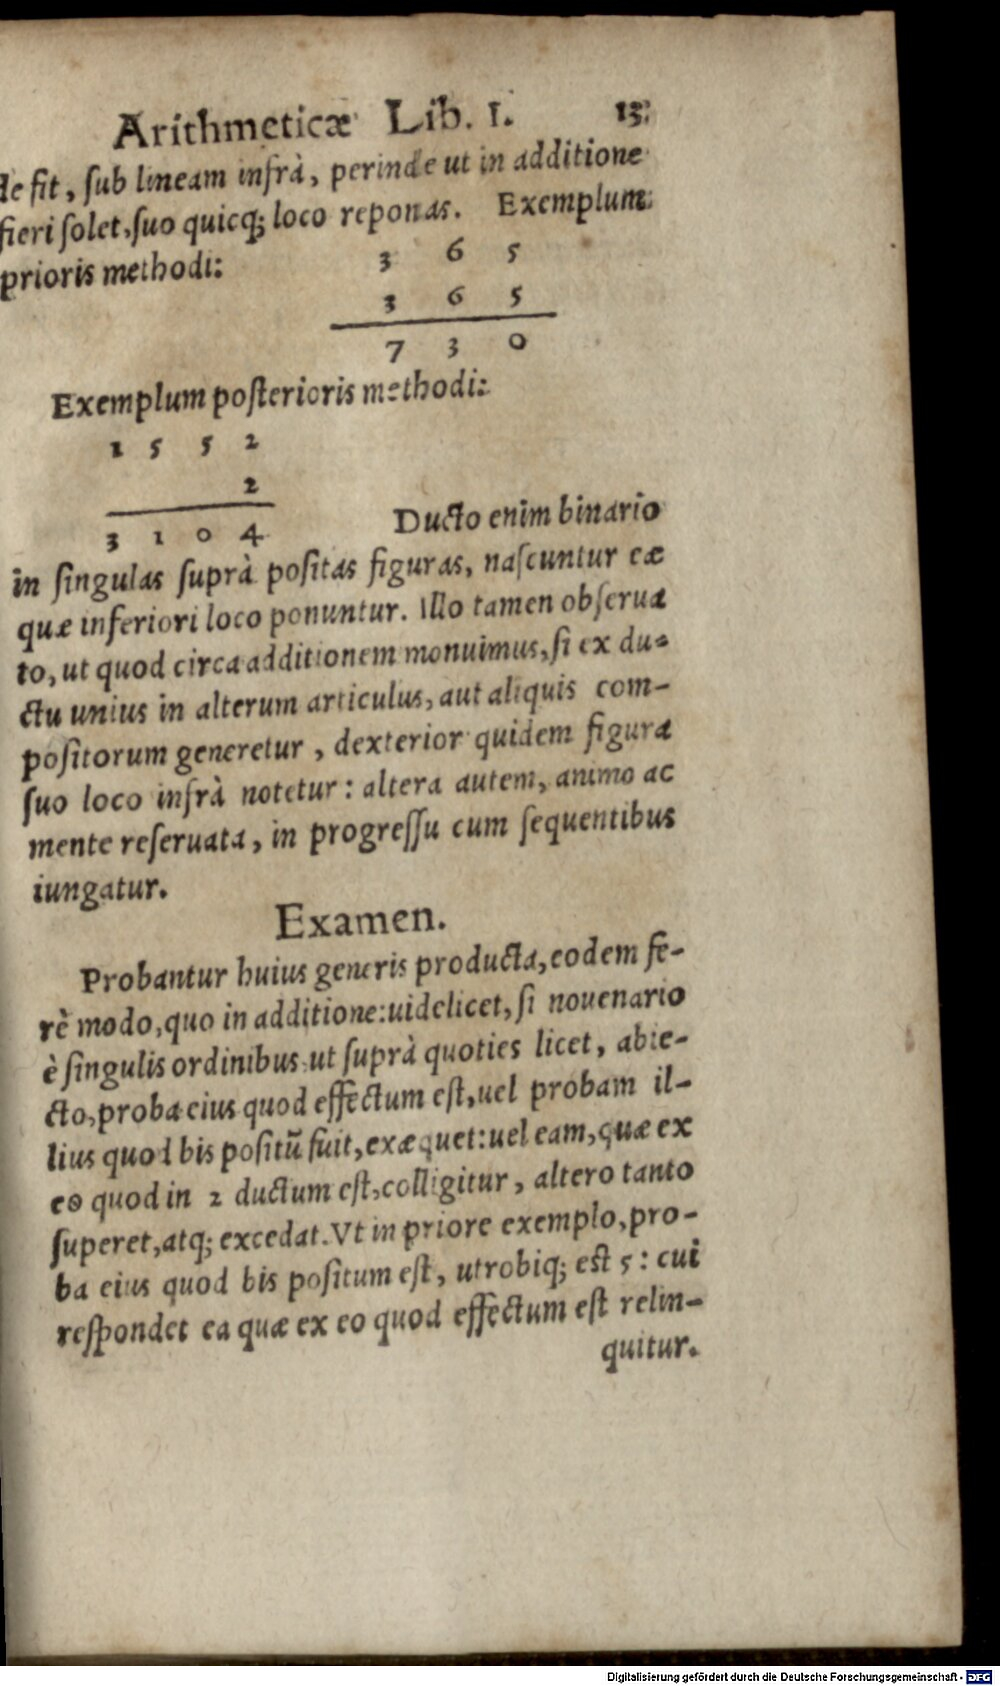 Arithmeticæ Lib. 1. 13.
de fit, ſub lineam infrà, perinde ut in additione
fieri ſolet, ſuo quicq; loco reponas. Exemplum
prioris methodi:
3 6 5
3 6 5
7 3 0
Exemplum poſterioris methodi:
1 5 5 2
2
3 1 0 4
Ducto enim binario
in ſingulas ſuprà poſitas figuras, naſcuntur eæ
quæ inferiori loco ponuntur. Illo tamen obſerua
to, ut quod circa additionem monuimus, ſi ex du-
ctu unius in alterum articulus, aut aliquis com-
poſitorum generetur, dexterior quidem figura
ſuo loco infrà notetur: altera autem, animo ac
mente reſeruata, in progreſſu cum ſequentibus
iungatur.
Examen.
Probantur huius generis producta, eodem fe-
rè modo, quo in additione: uidelicet, ſi nouenario
è ſingulis ordinibus, ut ſuprà quoties licet, abie-
cto, proba eius quod effectum eſt, uel probam il-
lius quod bis poſitũ fuit, exæquet: uel eam, quæ ex
eo quod in 2 ductum eſt, colligitur, altero tanto
ſuperet, atq; excedat. Vt in priore exemplo, pro-
ba eius quod bis poſitum eſt, utrobiq; eſt 5: cui
reſpondet ea quæ ex eo quod effectum eſt relin-
quitur.
Digitalisierung gefördert durch die Deutsche Forschungsgemeinschaft - DFG